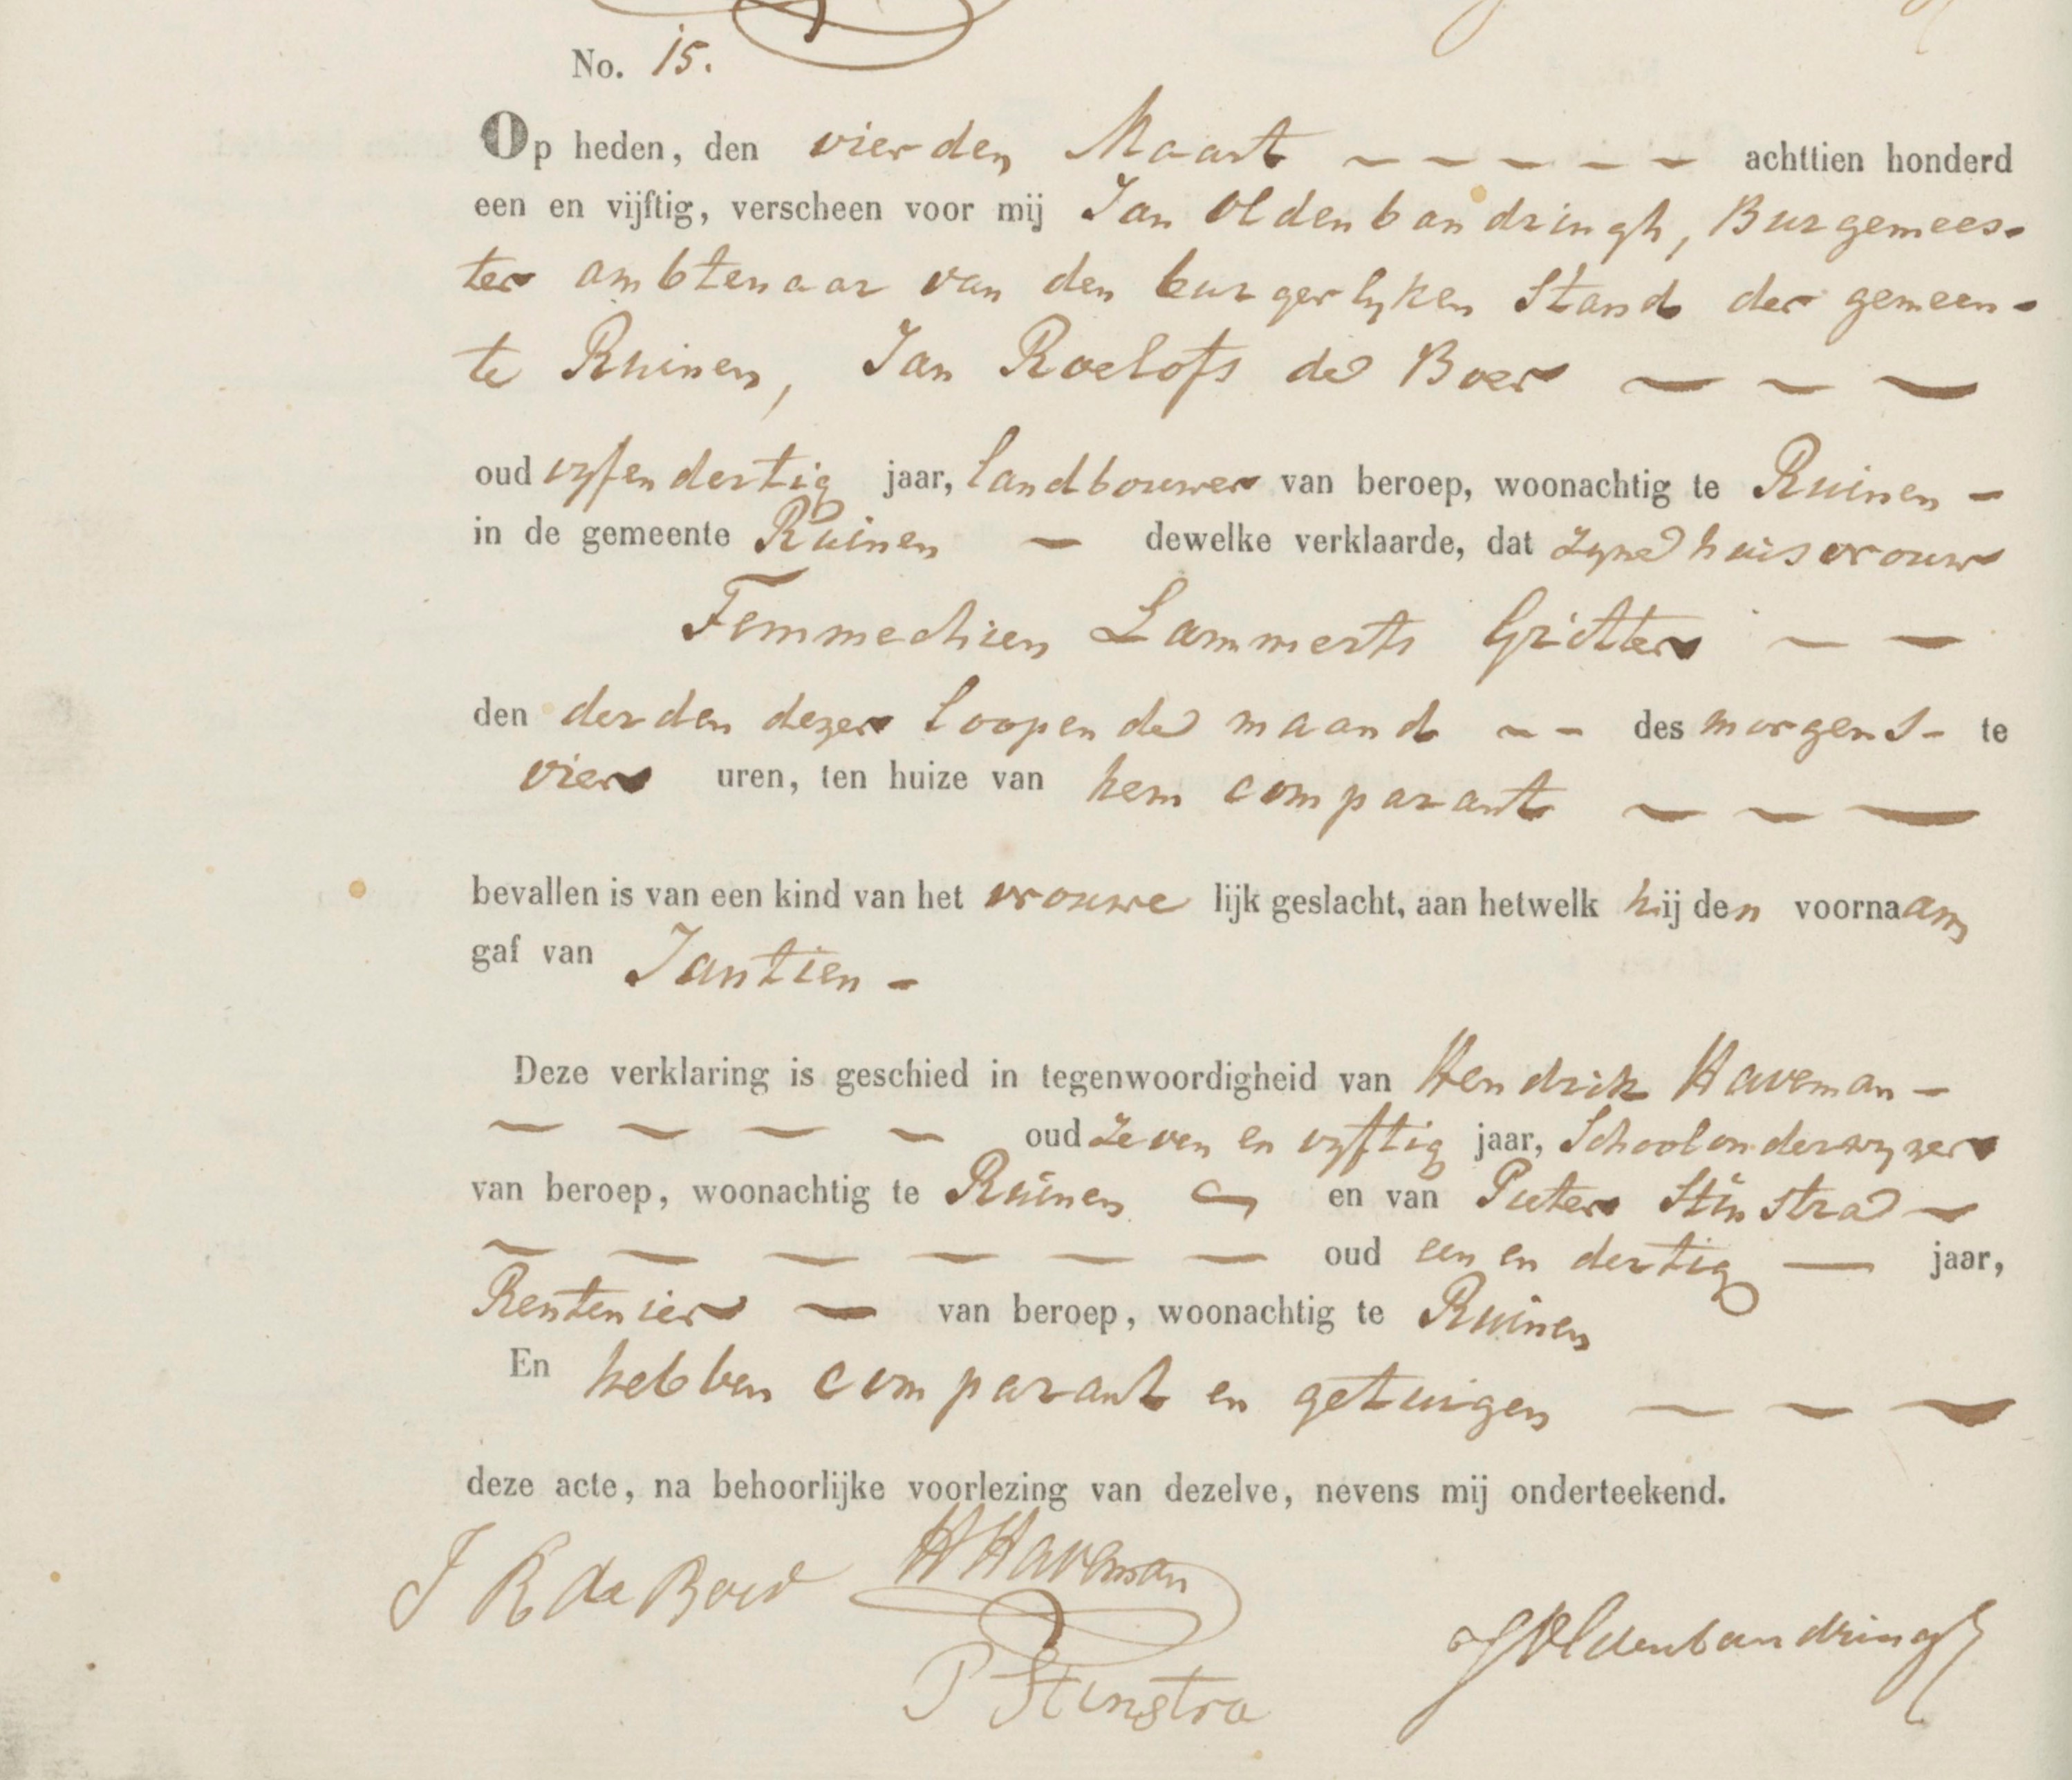 No. 15.
Op heden, den vierden Maart ~ ~ ~ ~ ~ ~ achttien honderd
een en vijftig, verscheen voor mij Jan Oldenbandringh, Burgemees-
ter ambtenaar van den burgerlyken Stand der gemeen-
te Ruinen, Jan Roelofs de Boer ~ ~ ~
oud vyfendertig jaar, landbouwer van beroep, woonachtig te Ruinen -
in de gemeente Ruinen - dewelke verklaarde, dat zyne huisvrouw
Femmechien Lammerts Gritter ~ ~
den derden dezer loopende maand ~ ~ des morgens - te
vier uren, ten huize van hem comparant ~ ~ ~
bevallen is van een kind van het vrouwe lijk geslacht, aan hetwelk hij den voornaam
gaf van Jantien -
Deze verklaring is geschied in tegenwoordigheid van Hendrik Haveman -
~ ~ ~ ~ oud zeven en vyftig jaar, Schoolonderwyzer
van beroep, woonachtig te Ruinen ~ en van Pieter Stinstra ~
~ ~ ~ ~ ~ ~ oud een en dertig — jaar,
Rentenier ~ van beroep, woonachtig te Ruinen
En hebben comparant en getuigen ~ ~ ~
deze acte, na behoorlijke voorlezing van dezelve, nevens mij onderteekend.
J R de Boer HHaveman
P Stinstra JOldenbandringh